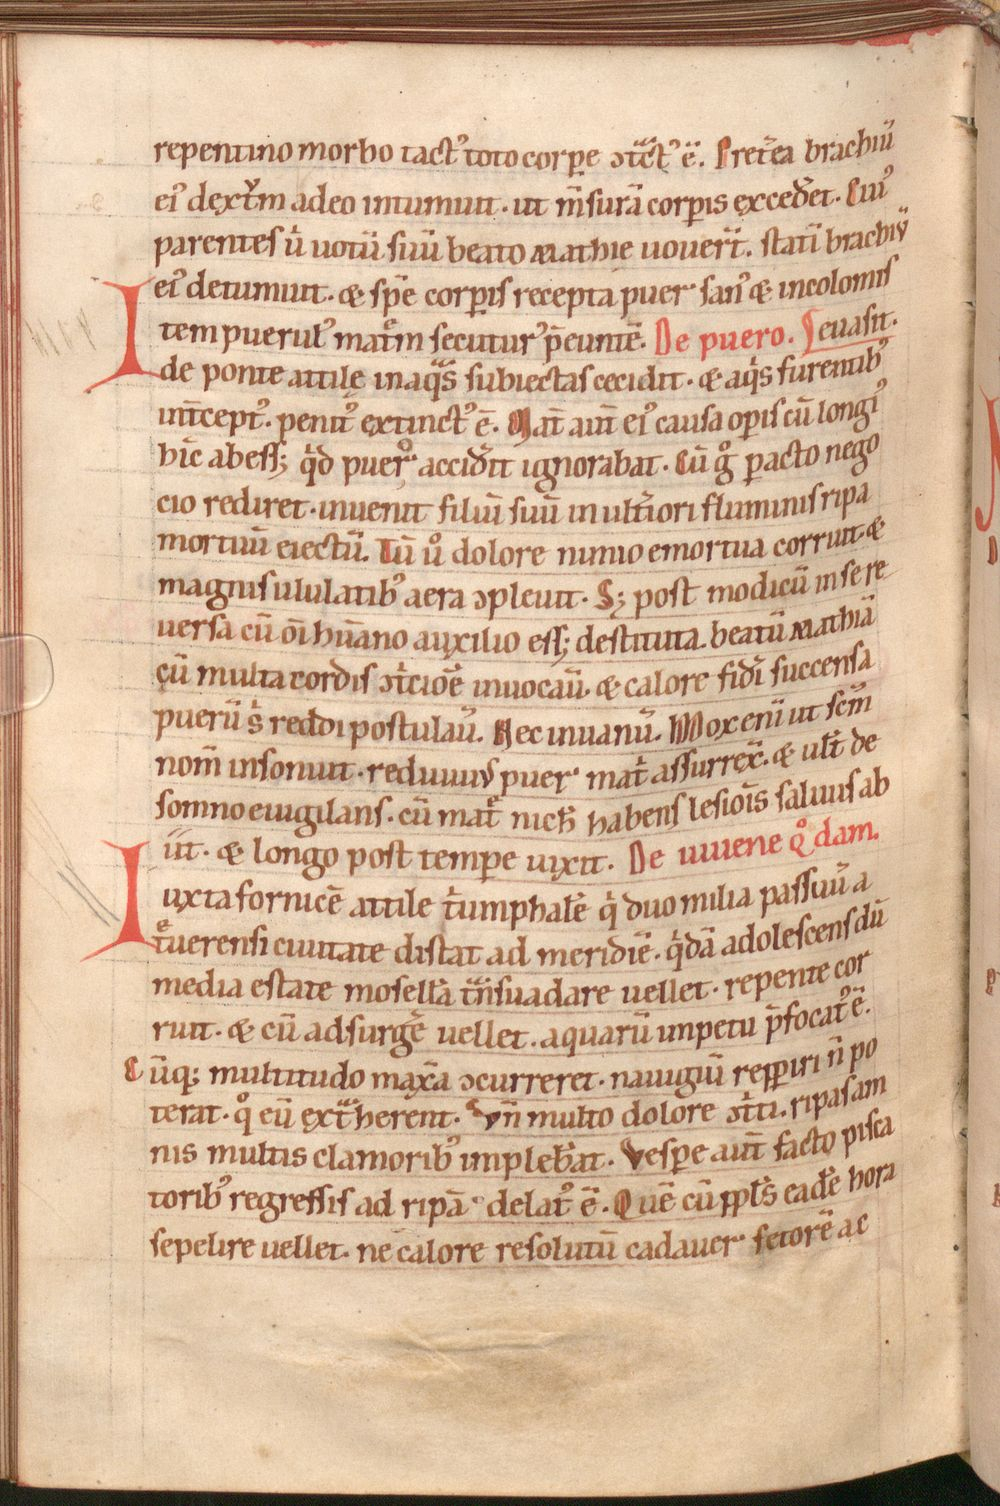 repentino morbo tactꝰ toto corpe ↄtͣctꝰ ē. Pret̄ea brachiū
eiꝰ dext̄m adeo intumuit. ut m̄surā corꝑis exced̄et. Cuiꝰ
parentes ū uotū suū beato Mathie uouer̄t. statī brachiū
eiꝰ detumuit. & spē corꝑis recepta puer sanꝰ & incolomis
Item puerulꝰ mat̄m secuturꝰ p̄euntē. De puero. euasit.
de ponte attile in aqͣs subiectas cecidit. & aqͥs furentibꝰ
int̄ceptꝰ. penitꝰ extinctꝰ ē. Mat̄ aut̄ eiꝰ causa oꝑis cū longiꝰ
hīc abess; qͥd pueͦr accid̄it ignorabat. Cū gͦ ꝑacto nego
cio rediret. inuenit filiū suū in ult̄iori fluminis ripa
mortuū eiectū. Tū uͦ dolore nimio emortua corruit. &
magnis ululatibꝰ aera ↄpleuit. S; post modicū in se re
uersa cū om̄i hūano auxilio ess; destituta. beatū Mathiā
cū multa cordis ↄt̄cioē inuocaū. & calore fid̄i succensa
puerū sͥ reddi postulaū. Nec inuanū. Mox enī ut scm̄
nom̄ insonuit. rediuiuꝰ puer mat̄ assurrex̄. & ult̄ de
somno euigilans. cū mat̄ nich̄ habens lesiōis saluus ab
iit. & longo post tempe uixit. De iuuene qͦdam.
Iuxta fornicē attile tͥumphalē qͥ duo milia passuū a
t̄uerensi ciuitate distat ad meridiē. qͥdā adolescens dū
media estate mosellā tͣnsuadare uellet. repente cor
ruit. & cū adsurgē uellet. aquarū impetu p̄focatꝰ ē.
Cūq; multitudo max̄a ↄcurreret. nauigiū reꝑiri n̄ po
terat. qͦ eū extͣherent. Vn̄ multo dolore ↄtͥti. ripas am
nis multis clamoribꝰ impleb̄at. Vesꝑe aut̄ facto pisca
toribꝰ regressis ad ripā delatꝰ ē. Quē cū ppls̄ ead̄e hora
sepelire uellet. ne calore resolutū cadauer fetorē ac